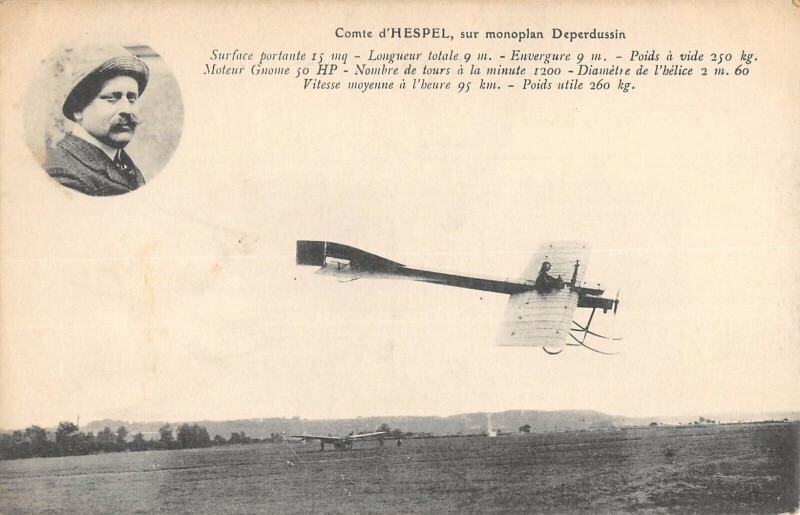 Comte d'HESPEL, sur monoplan Deperdussin
Surface portante 15 mq - Longueur totale 9 m. - Envergure 9 m. - Poids à vide 250 kg.
Moteur Gnome 50 HP - Nombre de tours à la minute 1200 - Diamètre de l'hélice 2 m. 60
Vitesse moyenne à l'heure 95 km. - Poids utile 260 kg.